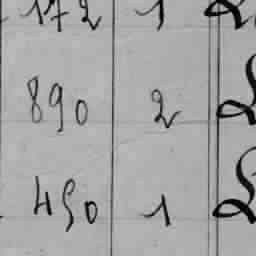 172 1
890 2
450 1